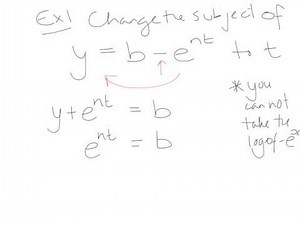 Ex1 Change the subject of
y = b - e^nt to t
y + e^nt = b
e^nt = b
* you
can not
take the
log of -e^x